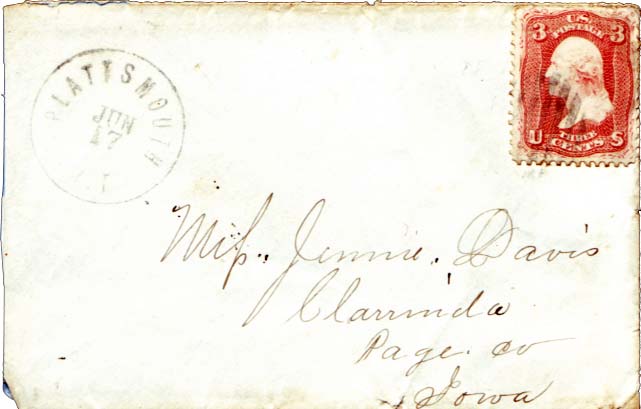 PLATTSMOUTH
JUN
17
T
3 U.S. 3
POSTAGE
U THREE S
CENTS
Miss. Jennie. Davis
Clarrinda
Page. co
Iowa